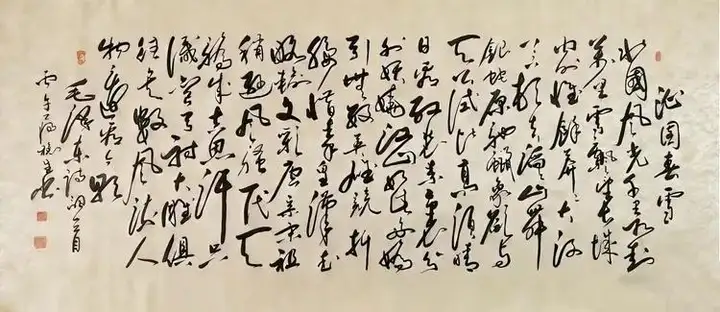 沁园春雪
北國风光千里冰封
萬里雪飄望長城
内外惟餘莽〻大河
上下頓失滔〻山舞
銀蛇原馳蠟象欲与
天公試比高須晴
日看红装素裹分
外妖娆江山如此多嬌
引無数英雄競折
腰惜秦皇漢武
略輸文彩唐宗宋祖
稍遜风骚一代天
骄成吉思汗只
識弯弓射大雕俱
往矣数风流人
物还看今朝
毛泽东詩词一首
丙午